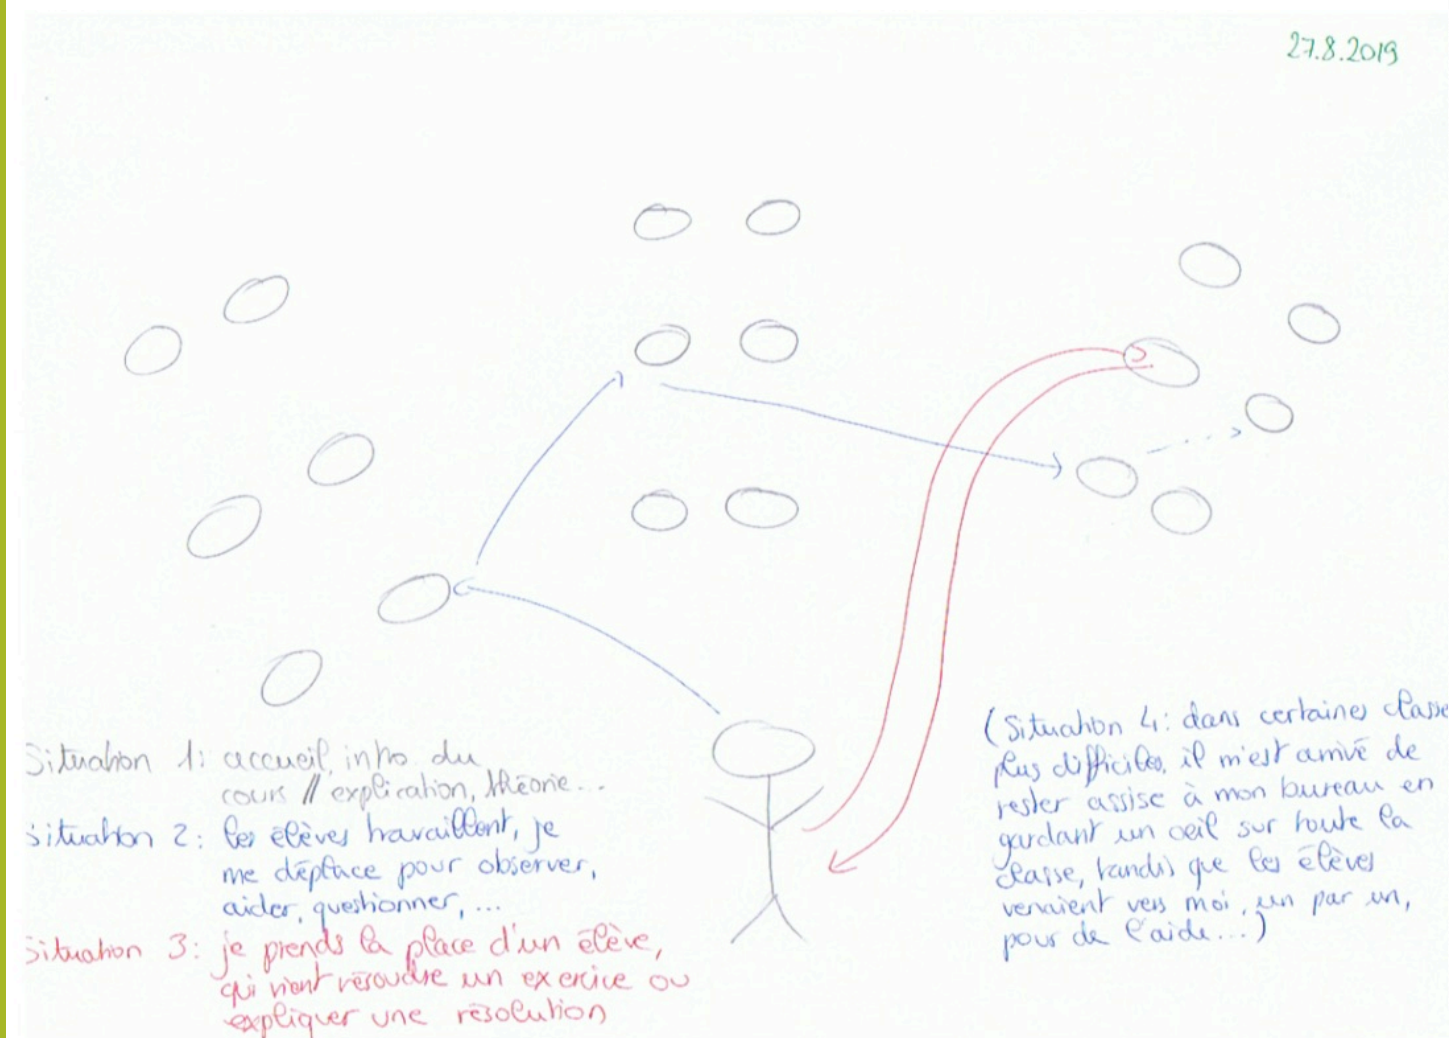 27.8.2019
Situation 1: accueil, intro du
cours // explication, théorie...
Situation 2: les élèves travaillent, je
me déplace pour observer,
aider, questionner, ...
Situation 3: je prends la place d'un élève,
qui vient résoudre un exercice ou
expliquer une résolution
(Situation 4: dans certaines classe
plus difficiles, il m'est arrivé de
rester assise à mon bureau en
gardant un oeil sur toute la
classe, tandis que les élèves
venaient vers moi, un par un,
pour de l'aide...)